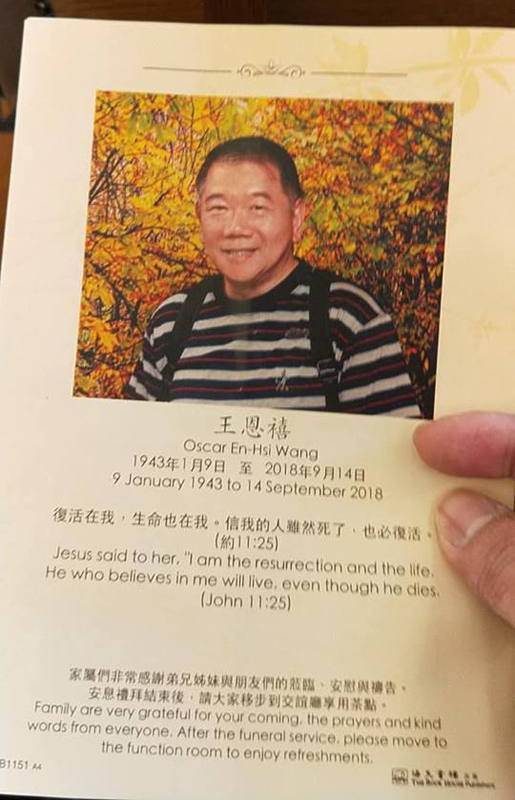 王恩禧
Oscar En-Hsi Wang
1943年1月9日 至 2018年9月14日
9 January 1943 to 14 September 2018
復活在我，生命也在我。信我的人雖然死了，也必復活。
(約11:25)
Jesus said to her, "I am the resurrection and the life.
He who believes in me will live, even though he dies.
(John 11:25)
家屬們非常感謝弟兄姊妹與朋友們的蒞臨、安慰與禱告。
安息禮拜結束後，請大家移步到交誼廳享用茶點。
Family are very grateful for your coming, the prayers and kind
words from everyone. After the funeral service, please move to
the function room to enjoy refreshments.
B1151 A4
The Book House Publishers